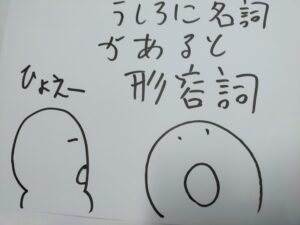 うしろに名詞
があると
形容詞
ひょえー